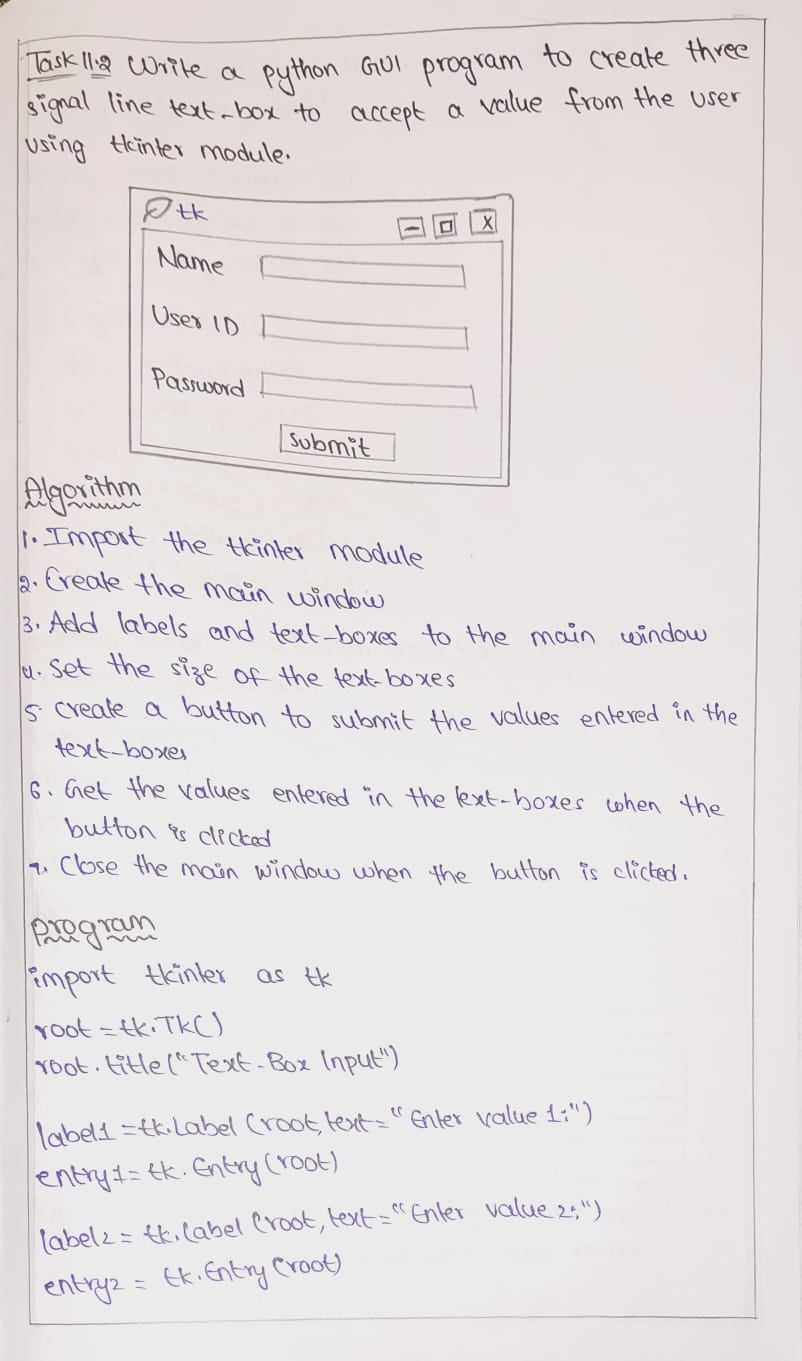 Task 11.2 Write a python GUI program to create three
signal line text-box to accept a value from the user
using tkinter module.
tk
- X
Name
User ID
Password
Submit
Algorithm
1. Import the tkinter module
2. Create the main window
3. Add labels and text-boxes to the main window
4. Set the size of the text-boxes
5. create a button to submit the values entered in the
text-boxes
6. Get the values entered in the text-boxes when the
button is clicked
7. Close the main window when the button is clicked.
program
import tkinter as tk
root = tk.Tk()
root.title("Text-Box Input")
label1 = tk.Label (root, text = "Enter value 1:")
entry1 = tk.Entry (root)
label2 = tk.label (root, text = "Enter value 2:")
entry2 = tk.Entry (root)